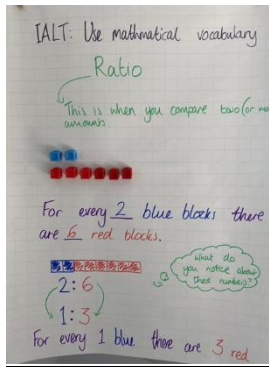 IALT: Use mathmatical vocabulary
Ratio
This is when you compare two (or
amounts.
For every 2 blue blocks there
are 6 red blocks.
2:6
What do
you notice about
these numbers?
1:3
For every 1 blue there are 3 red